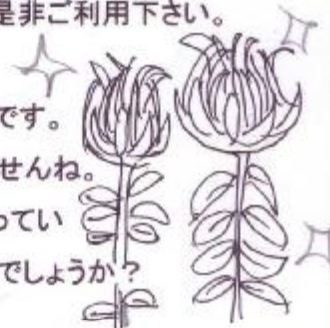 是非ご利用下さい。
です。
せんね。
ってい
でしょうか？